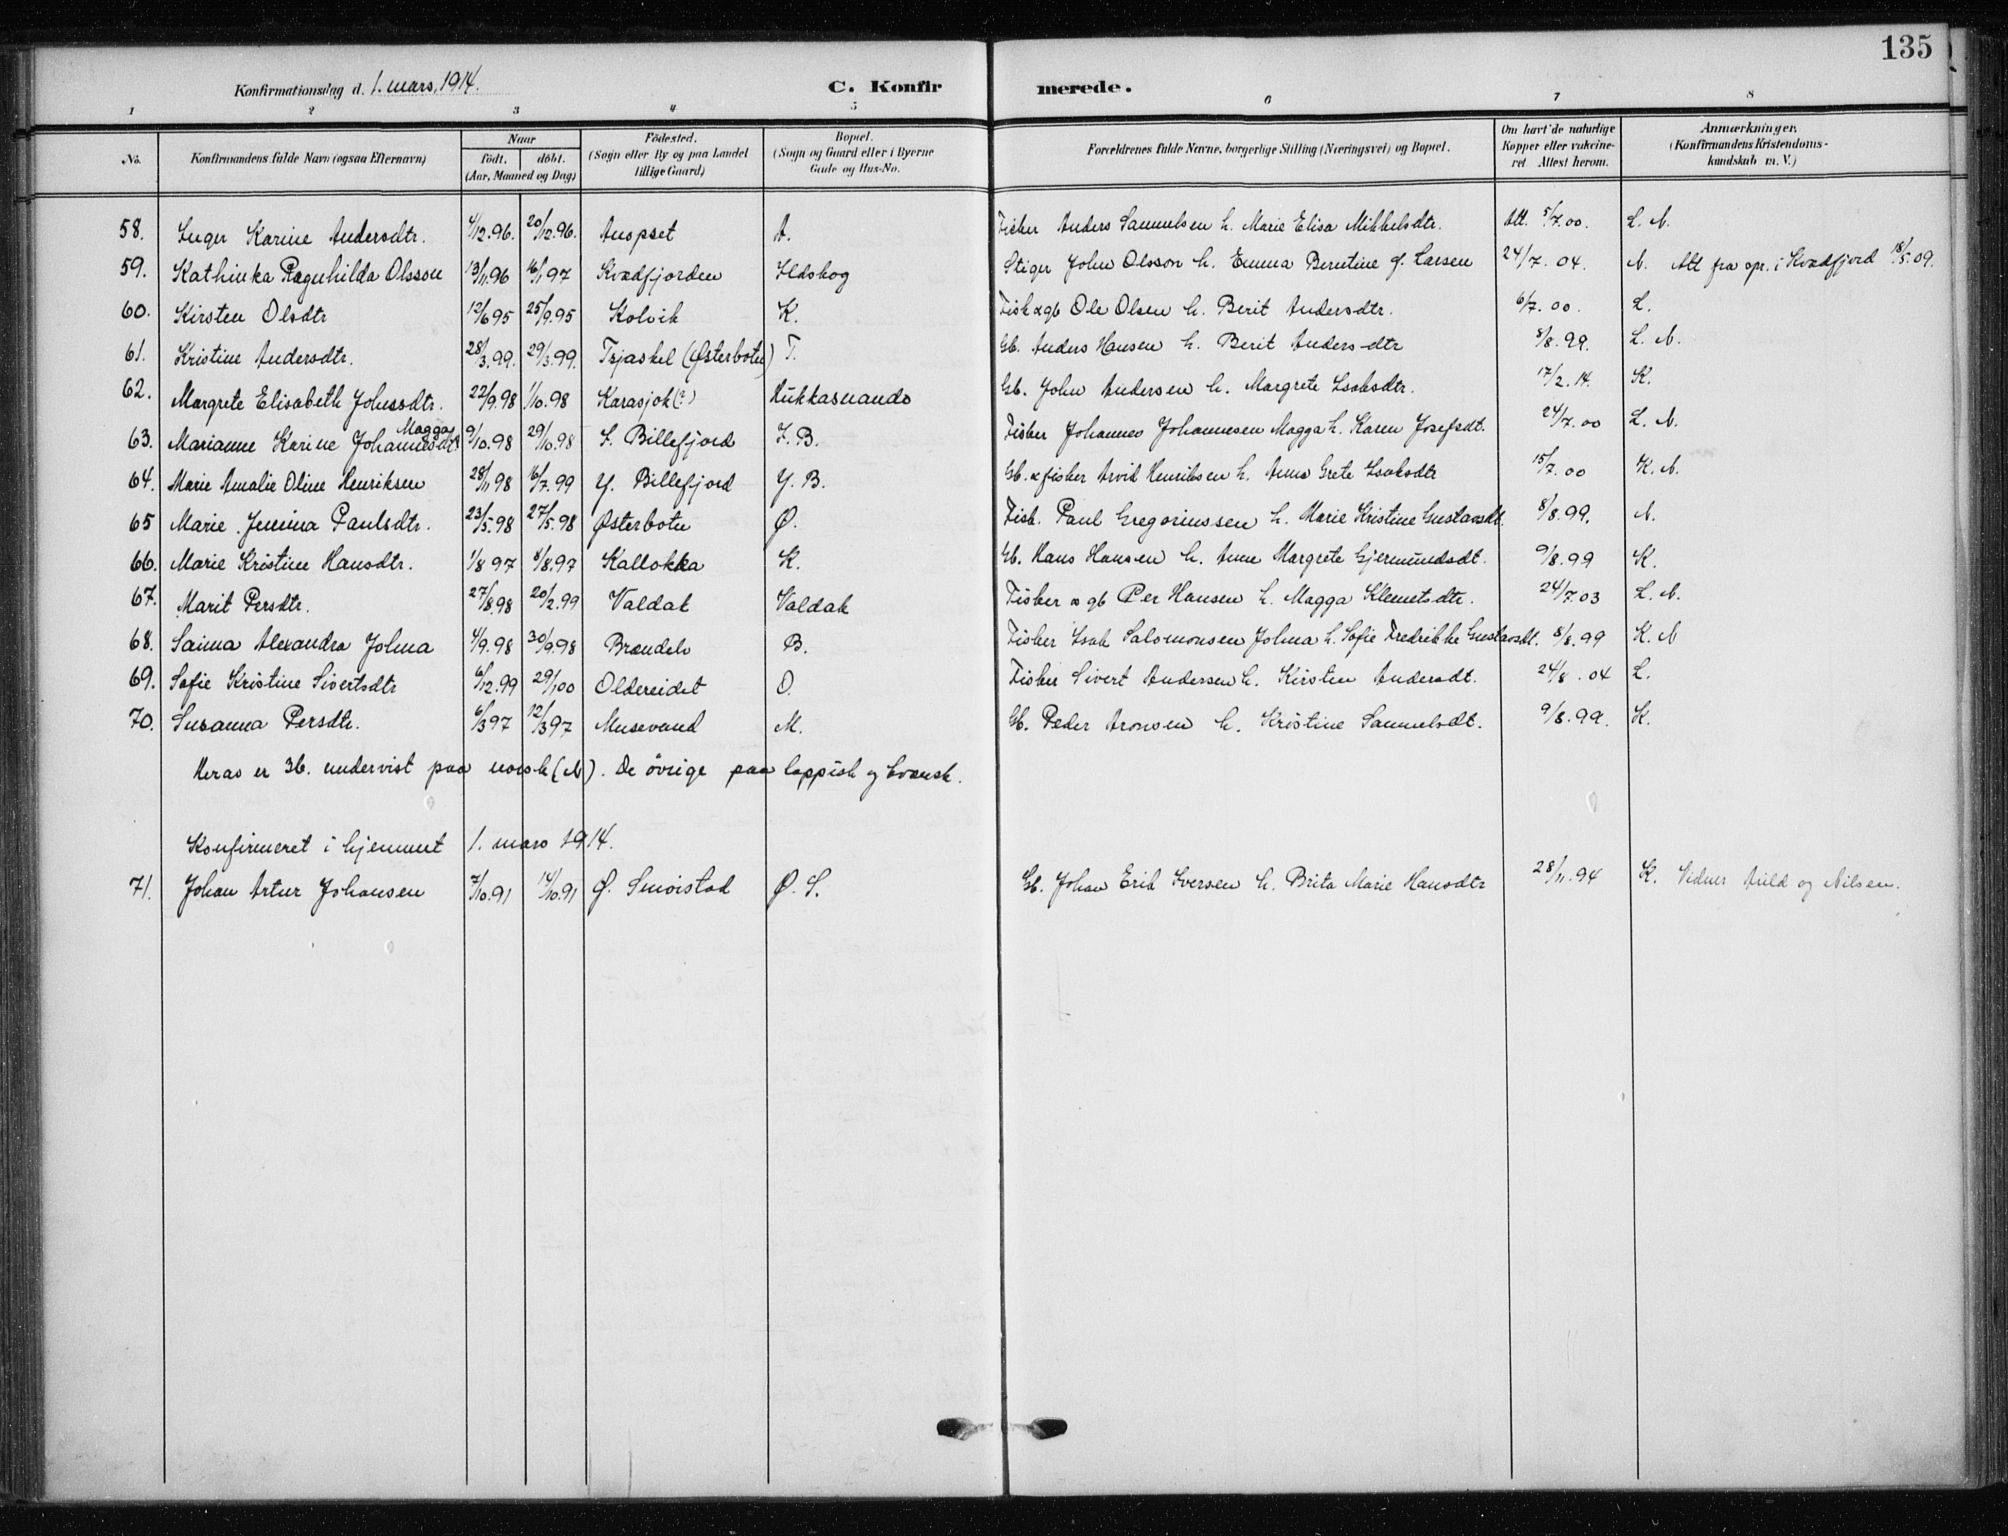 135
Konfirmationsdag d. 1. mars, 1914. C. Konfir merede.
1 2 3 4 5 6 7 8
No. Konfirmandens fulde Navn (ogsaa Efternavn) Naar født. døbt. (Aar, Maaned og Dag) Fødested. (Sogn eller By og paa Landet tillige Gaard) Bopæl. (Sogn og Gaard eller i Byerne Gade og Hus-No. Forældrenes fulde Navne, borgerlige Stilling (Næringsvei) og Bopæl. Om havt de naturlige Kopper eller vakcineret Attest herom. Anmærkninger. (Konfirmandens Kristendomskundskab m. V.)
58. Inger Karine Andersdtr. 4/12.96. 20/12.96. Anopset A. Fisker Anders Samuelsen h. Marie Elisa Mikkelsdtr. Att. 5/7.00. L. N.
59. Kathinka Ragnhilda Olsson 13/11.96 16/1 97 Kvædfjorden Ildskog Stiger John Olsson h. Emma Berntine f. Larsen 24/7.04. N. Att fra spr. i Kvædfjord 18/5.09.
60. Kirsten Olsdtr 12/6 95 25/9.95 Kolvik K. Fisk & gb Ole Olsen h. Berit Andersdtr. 6/7.00. L.
61. Kristine Andersdtr. 28/3.99. 29/3.99. Tjaskel (Østerbotn) T. Gb. Anders Hansen h. Berit Andersdtr 8/8.99. L. N.
62. Margrete Elisabeth Johnsdtr. 22/9.98 1/10.98 Karasjok (?) Kukkasnando Gb. John Andersen h. Margrete Isaksdtr. 17/2.14. K.
63. Marianne Karine Johannesdtr Magga 9/10.98 29/10.98 I. Billefjord I. B. Fisker Johannes Johannesen Magga h. Karen Josefsdt. 24/7.00 L. N.
64. Marie Amalie Oline Henriksen 28/11 98 16/7.99 Y. Billefjord Y. B. Gb. & fisker Arvid Henriksen h. Anna Grete Isaksdtr 15/7.00 K. N.
65 Marie Jemina Paulsdtr. 23/5.98 27/5.98 Østerbotn Ø. Fisk. Paul Gregoriussen h. Marie Kristine Gustavsdt. 8/8.99. N.
66. Marie Kristine Hansdtr. 1/8 97 8/8.97 Kallokka K. Gb. Hans Hansen h. Anne Margrete Gjermundsdt. 9/8.99 K.
67. Marit Persdtr. 27/8.98 20/2.99 Valdak Valdak Fisker & gb Per Hansen h. Magga Klemetsdtr. 24/7.03 L. N.
68. Saima Alexandra Johna 4/9.98 30/9.98 Brændelv B. Fisker Isak Salomonsen Johna h. Sofie Fredrikke Gustavsdt. 8/8.99 K. N
69. Sofie Kristine Sivertsdtr 6/12.99 29/1.00 Oldereidet O. Fisker Sivert Andersen h. Kirsten Andersdt. 24/8.04 L.
70. Susanna Persdtr. 6/3 97 12/3 97 Musevand M. Gb. Peder Aronsen h. Kristine Samuelsdt. 9/8.99. K.
Heraf er 36. undervist paa norsk (N). De øvrige paa lappisk og kvænsk.
Konfirmeret i hjemmet 1. mars 1914.
71. Johan Artur Johansen 7/10.91 14/10.91 Ø. Smøistad Ø. S. Gb. Johan Erik Iversen h. Brita Marie Hansdtr 28/11.94 K. Vidner Auld og Nilsen.